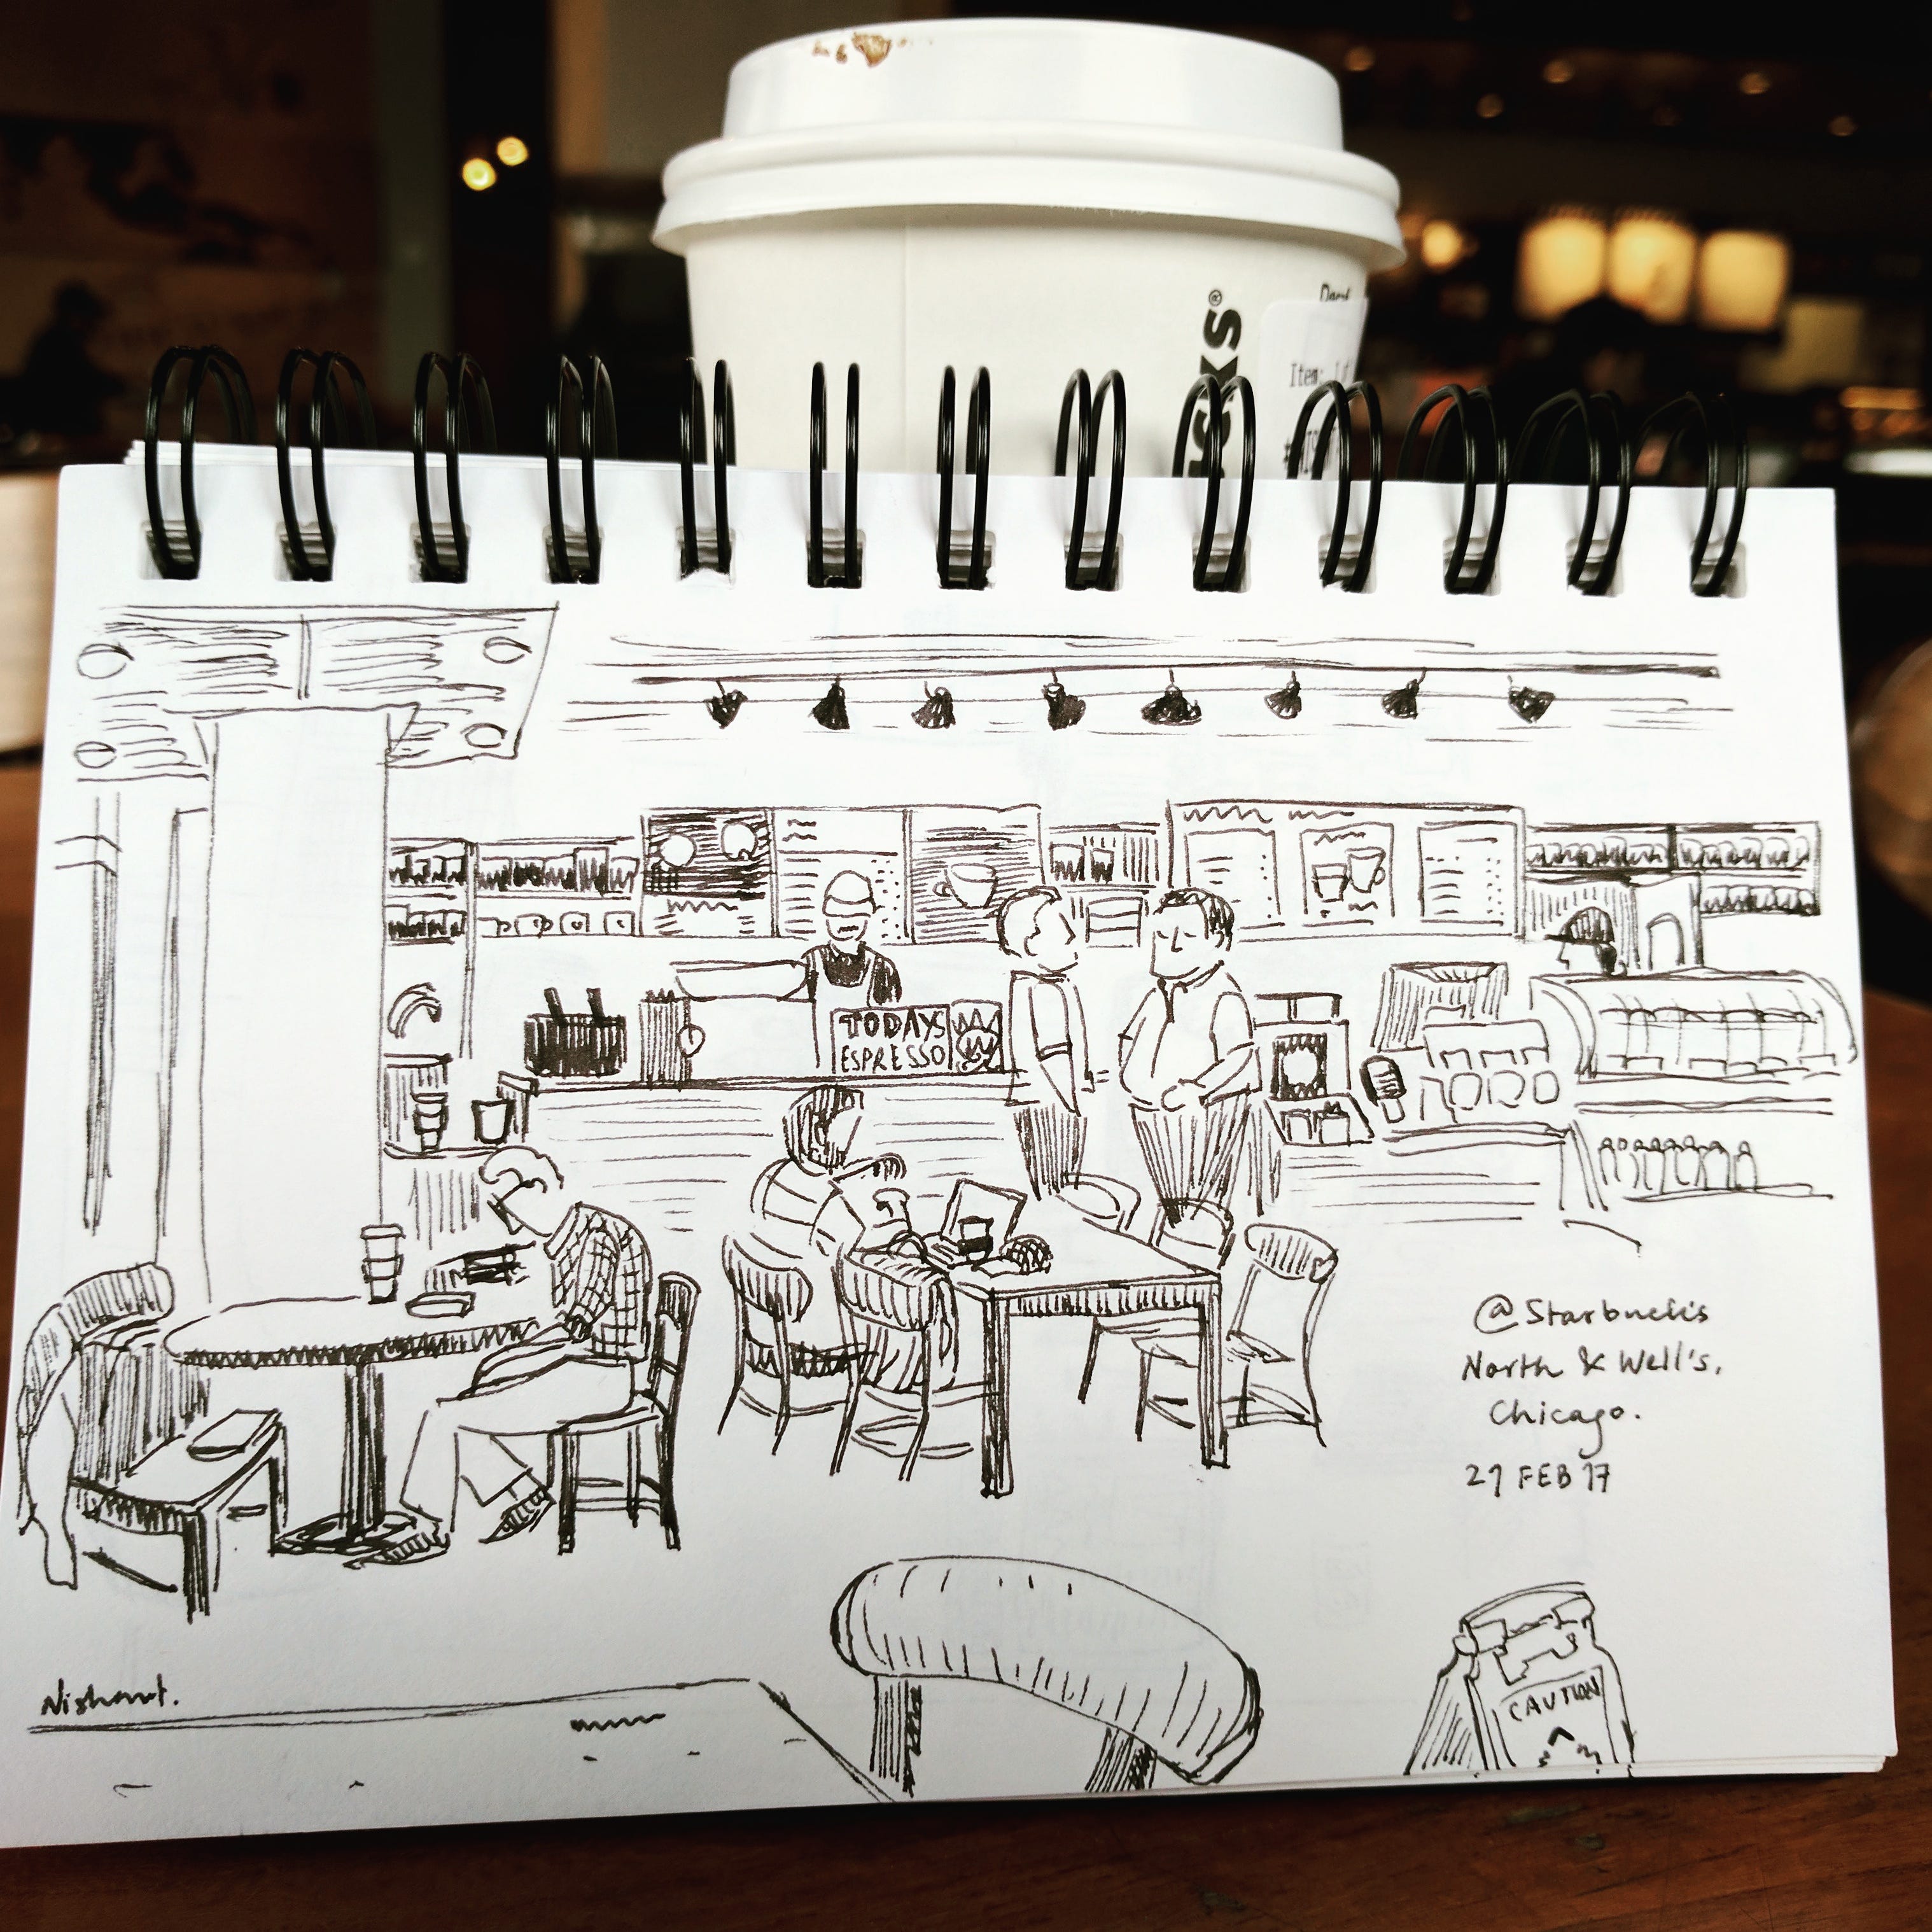 CKS®
Item: 1
TODAYS
ESPRESSO
@Starbucks
North & Well's,
Chicago.
27 FEB 17
CAUTION
Nishant.